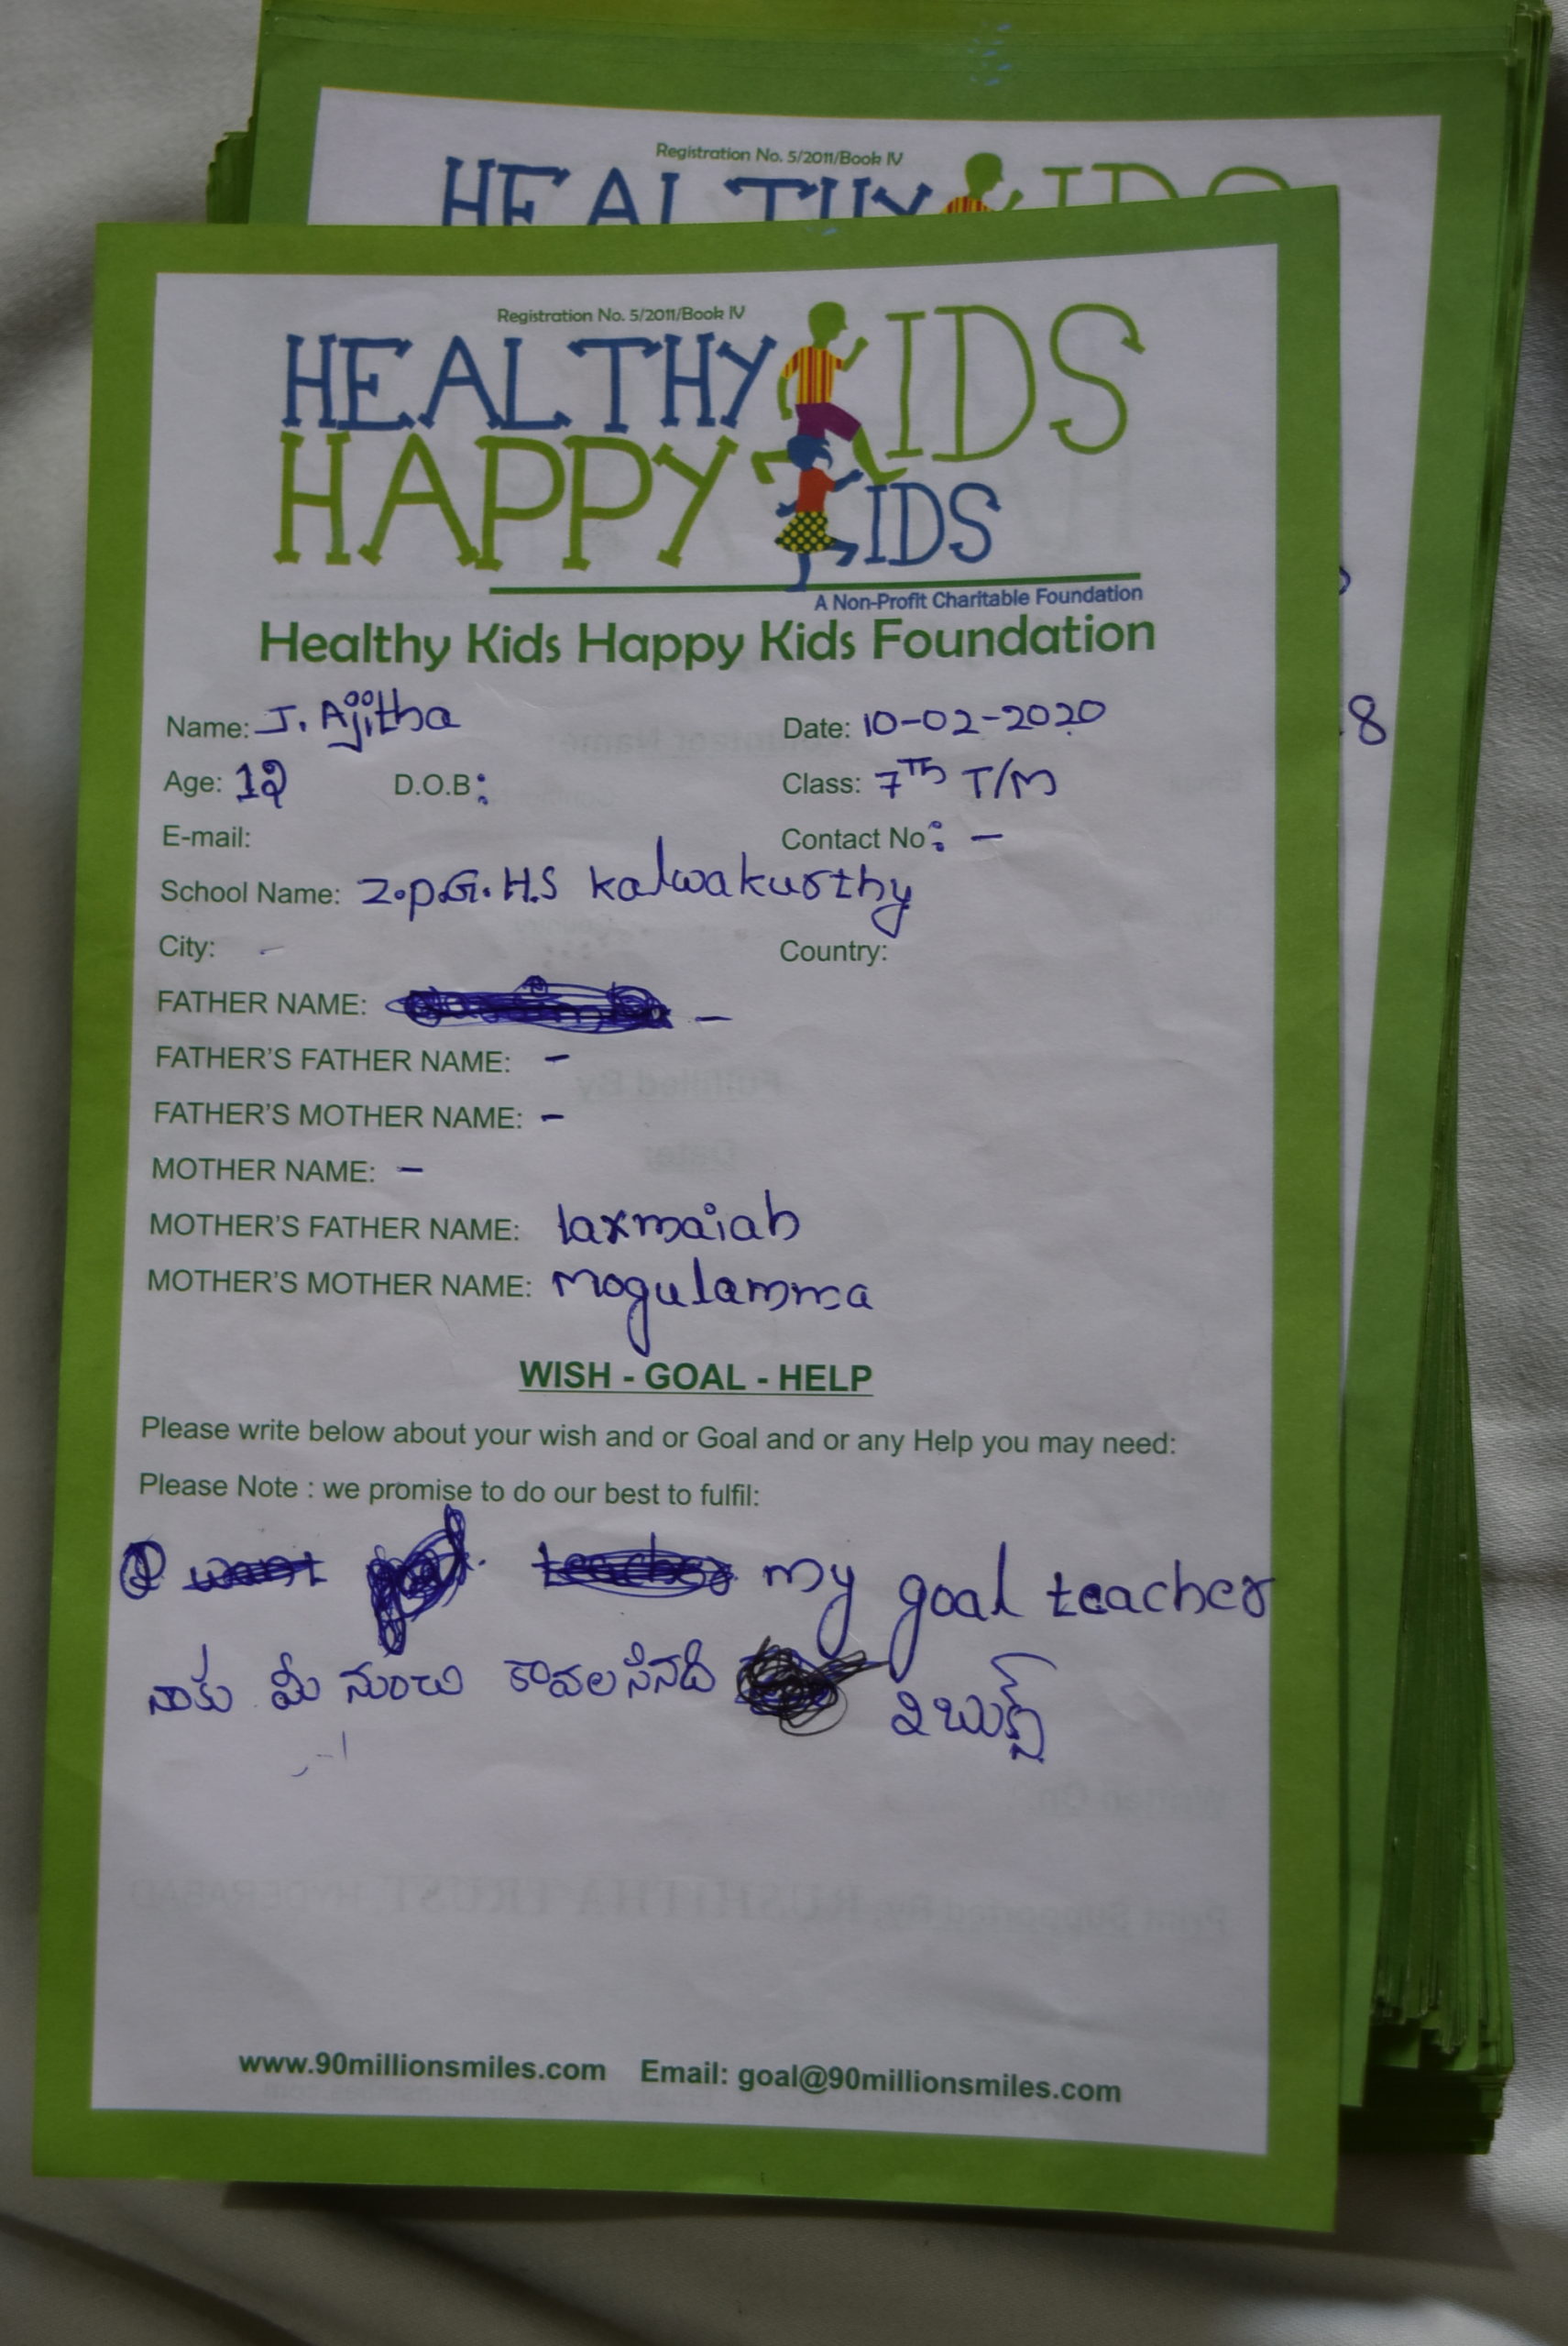 Registration No. 5/2011/Book IV
HEALTHY KIDS
Registration No. 5/2011/Book IV
HEALTHY KIDS
HAPPY KIDS
A Non-Profit Charitable Foundation
Healthy Kids Happy Kids Foundation
Name: J. Ajitha Date: 10-02-2020
Age: 12 D.O.B: Class: 7Th T/M
E-mail: Contact No: -
School Name: Z.P.G.H.S kalwakurthy
City: - Country:
FATHER NAME: -
FATHER'S FATHER NAME: -
FATHER'S MOTHER NAME: -
MOTHER NAME: -
MOTHER'S FATHER NAME: laxmaiah
MOTHER'S MOTHER NAME: Mogulamma
WISH - GOAL - HELP
Please write below about your wish and or Goal and or any Help you may need:
Please Note : we promise to do our best to fulfil:
I want goal teacher my goal teacher
నాకు మీ నుంచి కావలసినది 2 బుక్స్
www.90millionsmiles.com Email: goal@90millionsmiles.com
8